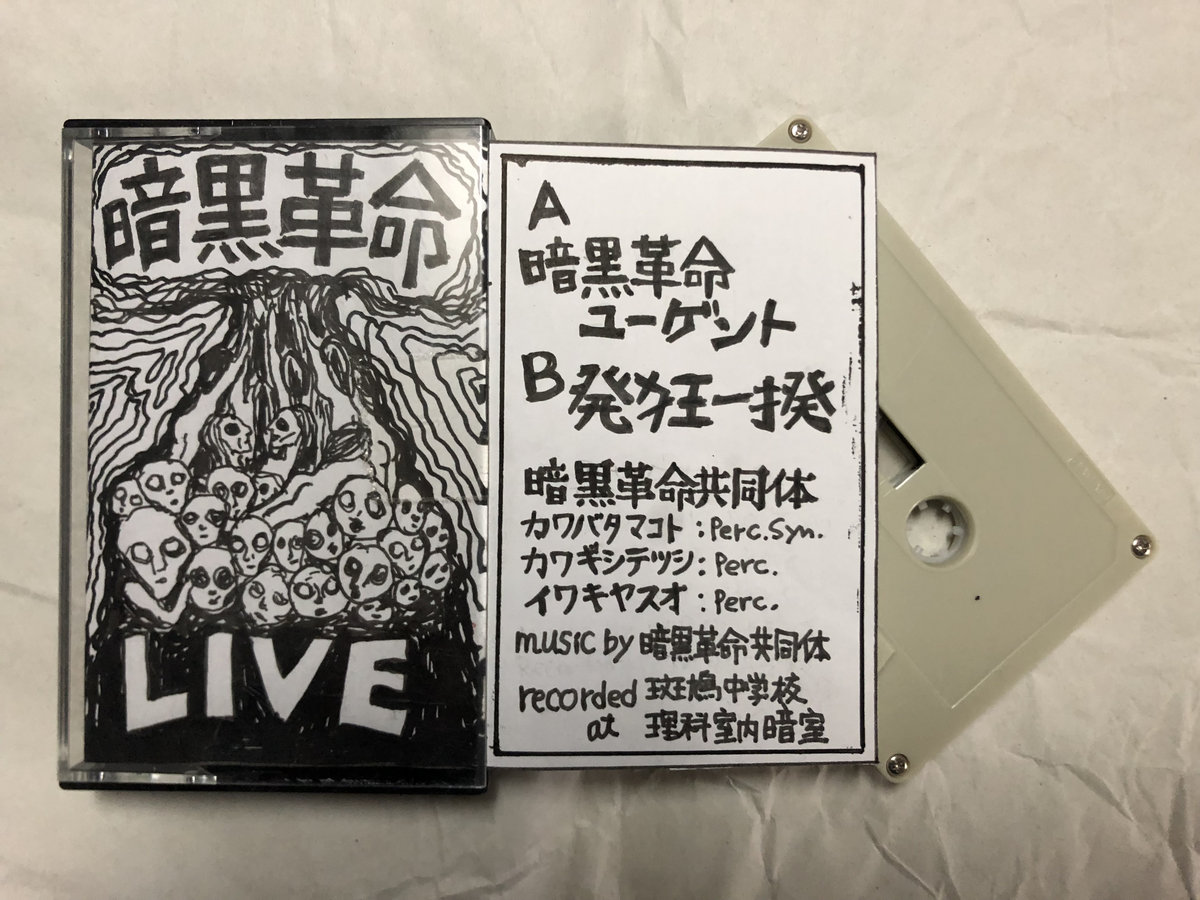 暗黒革命
LIVE
A
暗黒革命
ユーゲント
B 発狂一揆
暗黒革命共同体
カワバタマコト : Perc. Syn.
カワギシテツシ : Perc.
イワキヤスオ : Perc.
music by 暗黒革命共同体
recorded 斑鳩中学校
at 理科室内暗室